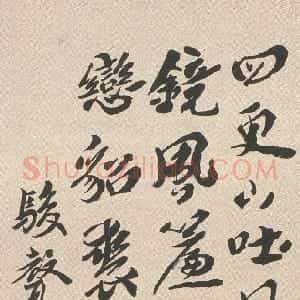 四更山吐月
鏡風簾
戀貂裘
駿聲
Shufaziliao.com